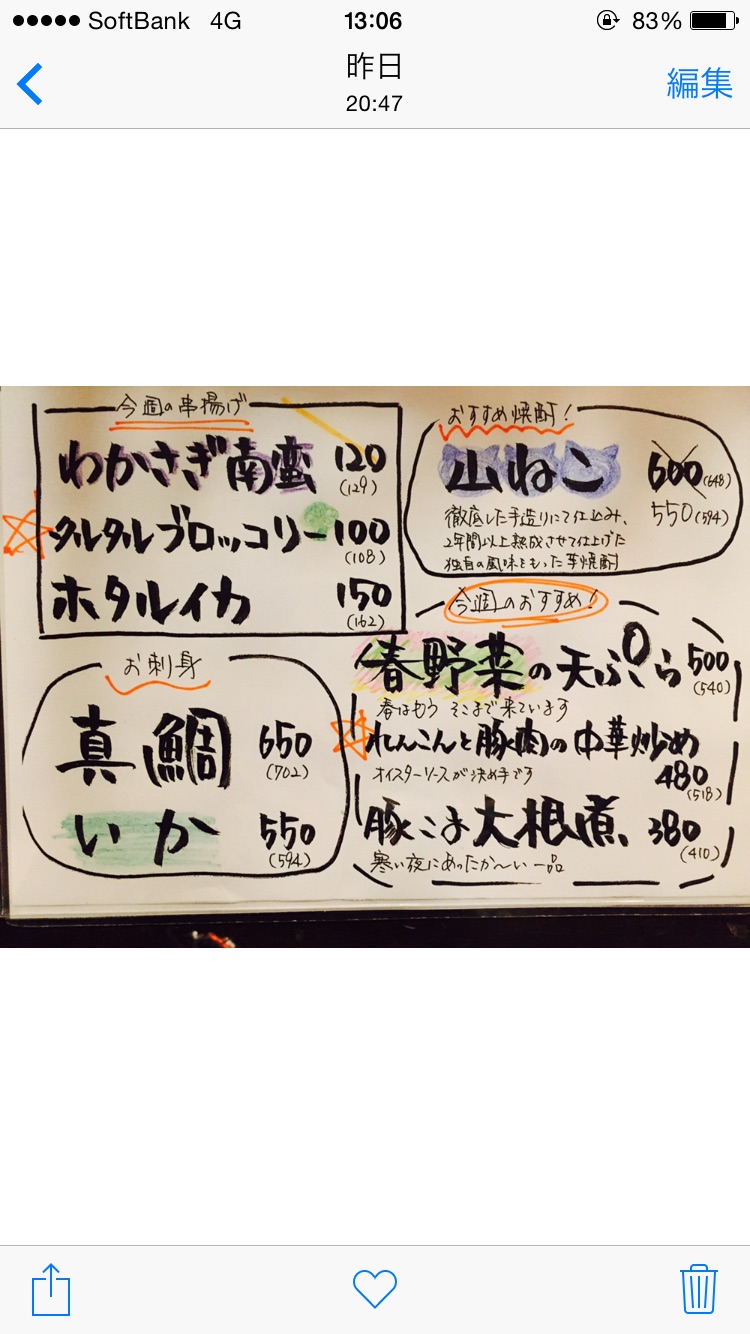 SoftBank 4G 13:06 83%
昨日
20:47
編集
今週の串揚げ
わかさぎ南蛮 120
(129)
タルタルブロッコリー 100
(108)
ホタルイカ 150
(162)
おすすめ焼酎!
山ねこ 600(648)
550(594)
徹底した手造りにて仕込み、
2年間以上熟成させて仕上げた
独自の風味をもった芋焼酎
お刺身
真鯛 650
(702)
いか 550
(594)
今週のおすすめ!
春野菜の天ぷら 500
(540)
春はもう そこまで来ています
れんこんと豚肉の中華炒め
480
(518)
オイスターソースが決め手です
豚こま大根煮、380
(410)
寒い夜にあったか〜い一品